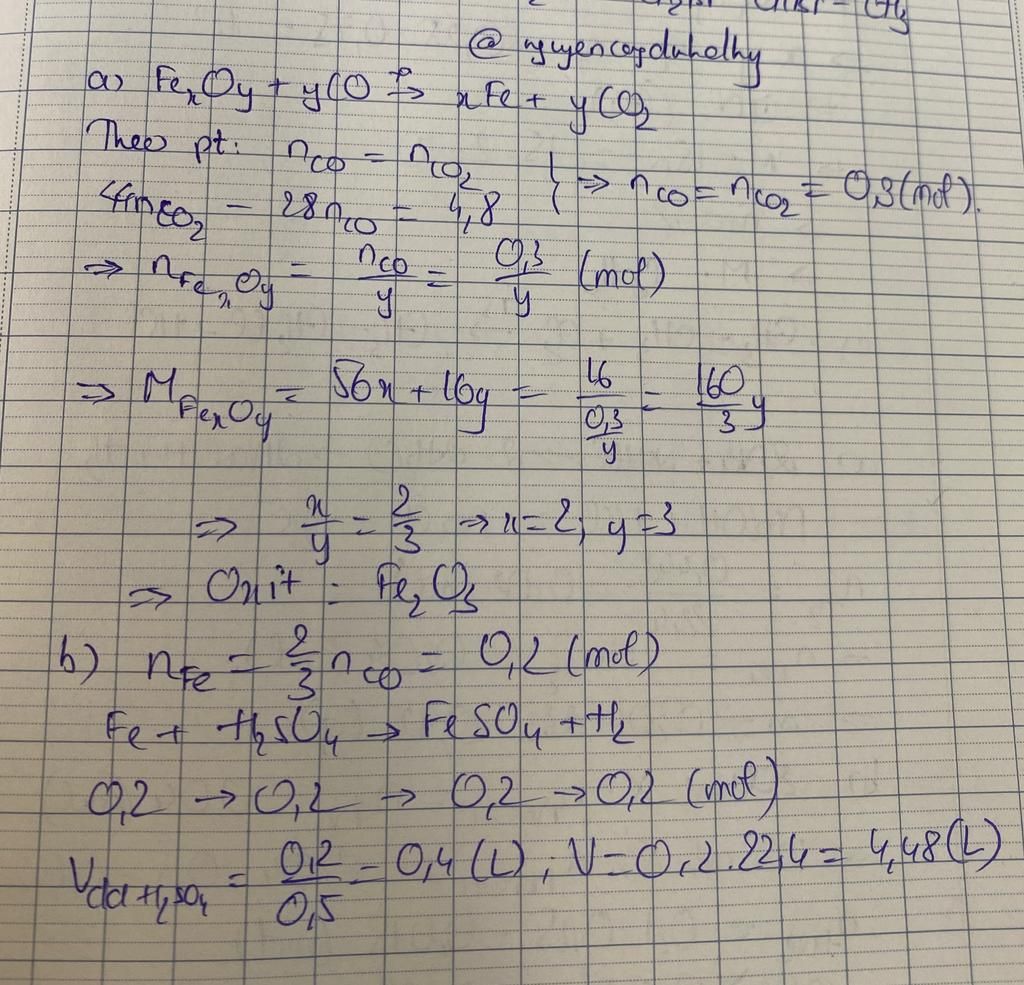 @nguyencogduhelhy
a) FexOy + yCO t°→ xFe + yCO2
Theo pt: nCO = nCO2
44nCO2 - 28nCO = 4,8 } ⇒ nCO = nCO2 = 0,3 (mol).
⇒ nFexOy = nCO/y = 0,3/y (mol)
⇒ MFexOy = 56x + 16y = 16/(0,3/y) = 160/3 y
⇒ x/y = 2/3 ⇒ x = 2, y = 3
⇒ Oxit : Fe2O3
b) nFe = 2/3 nCO = 0,2 (mol)
Fe + H2SO4 → FeSO4 + H2
0,2 → 0,2 → 0,2 → 0,2 (mol)
Vdd H2SO4 = 0,2/0,5 = 0,4 (L), V = 0,2.22,4 = 4,48 (L)